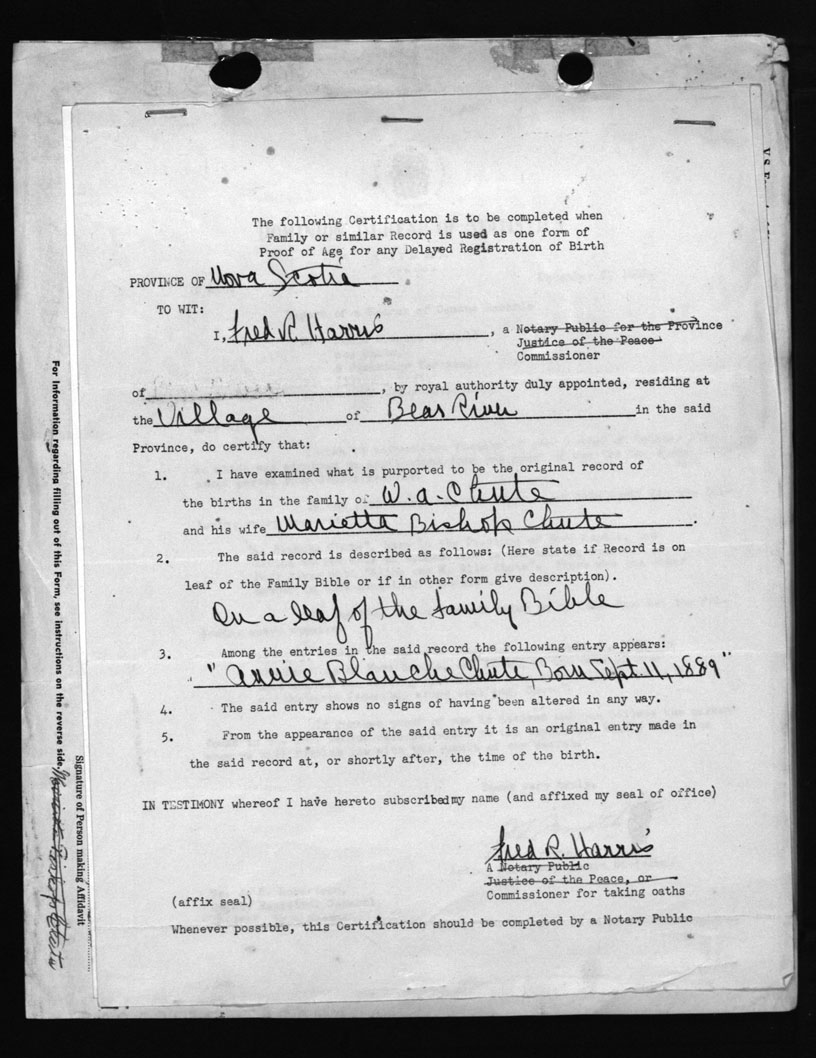 The following Certification is to be completed when
Family or similar Record is used as one form of
Proof of Age for any Delayed Registration of Birth
PROVINCE OF Nova Scotia
TO WIT:
I, Fred R. Harris, a Notary Public for the Province
Justice of the Peace
Commissioner
of , by royal authority duly appointed, residing at
the Village of Bear River in the said
Province, do certify that:
1. I have examined what is purported to be the original record of
the births in the family of W. A. Chute
and his wife Marietta Bishop Chute.
2. The said record is described as follows: (Here state if Record is on
leaf of the Family Bible or if in other form give description).
On a leaf of the family Bible
3. Among the entries in the said record the following entry appears:
"Annie Blanche Chute, Born Sept. 11, 1889"
4. The said entry shows no signs of having been altered in any way.
5. From the appearance of the said entry it is an original entry made in
the said record at, or shortly after, the time of the birth.
IN TESTIMONY whereof I have hereto subscribed my name (and affixed my seal of office)
Fred R. Harris
A Notary Public
Justice of the Peace, or
(affix seal) Commissioner for taking oaths
Whenever possible, this Certification should be completed by a Notary Public
For Information regarding filling out of this Form, see instructions on the reverse side.
Signature of Person making Affidavit
Marietta Bishop Chute